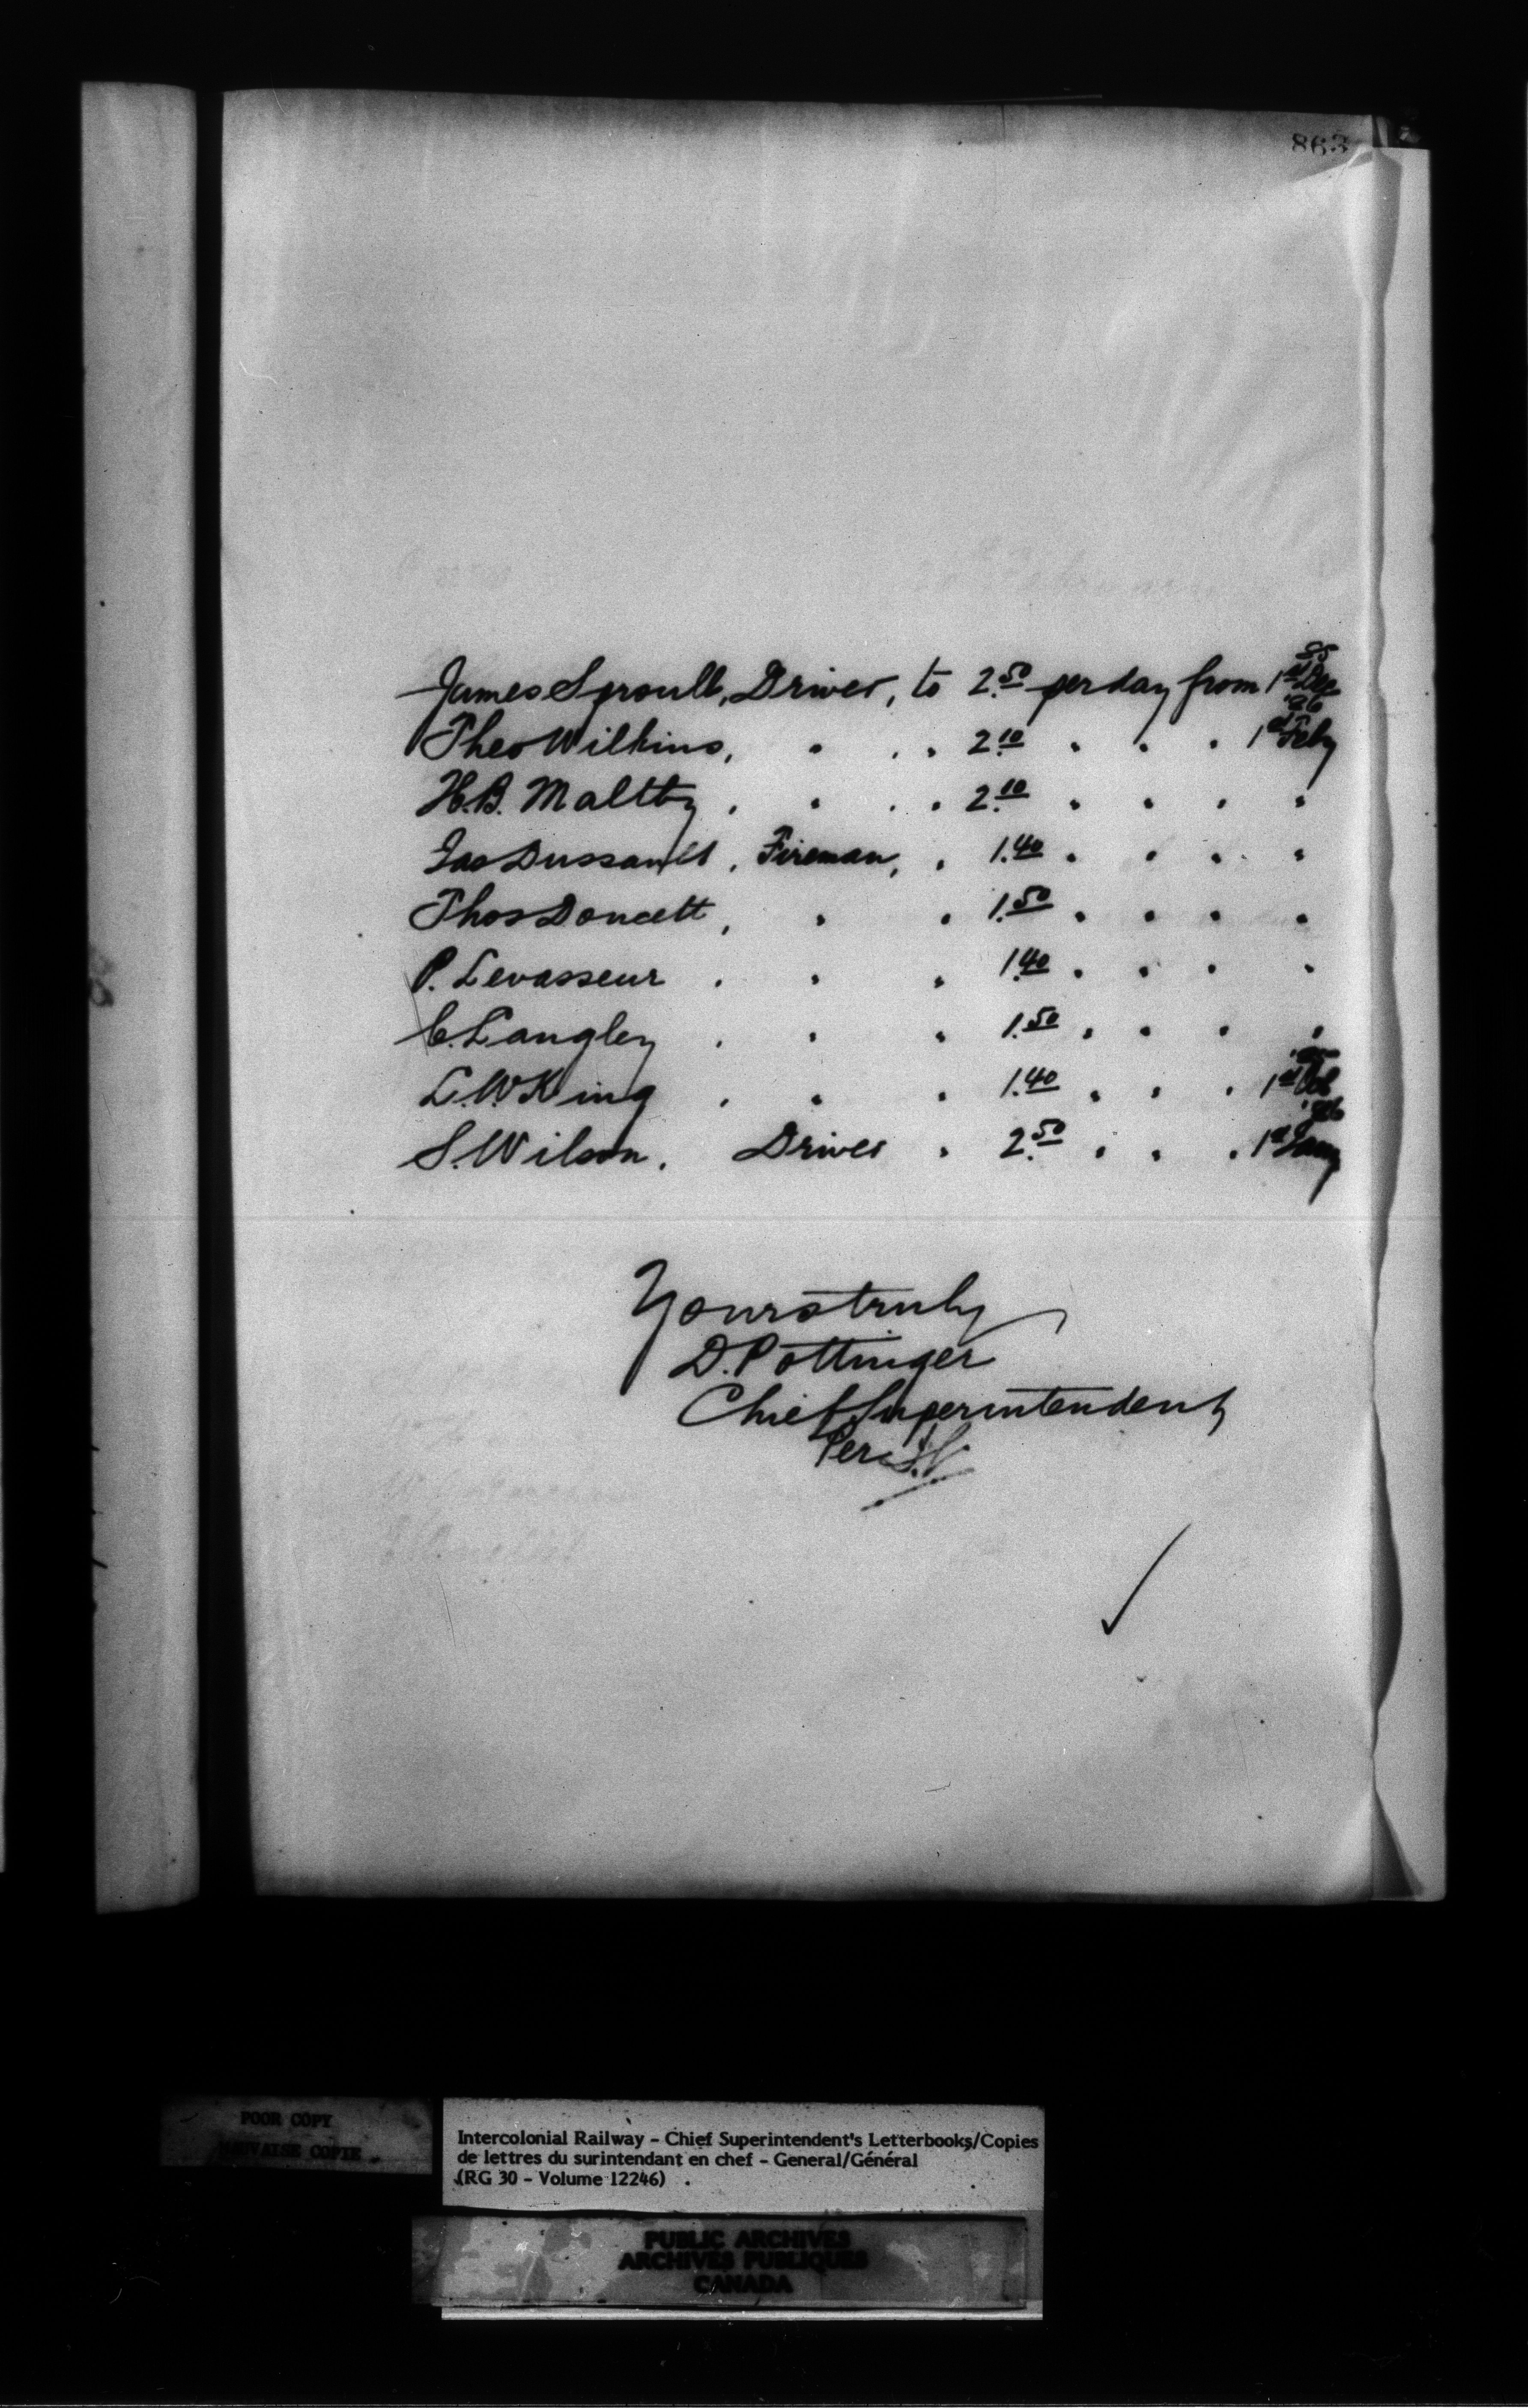 863
James Sproull, Driver, to 2.50 per day from 1st Dec 85
Theo Wilkins, " " " 2.10 " " " 1st Feby '86
H.B. Maltby, " " " 2.10 " " " "
Jas Dussault, Fireman, " 1.40 " " " "
Thos Doucett, " " 1.50 " " " "
P. Levasseur " " " 1.40 " " " "
C. Langley " " " 1.50 " " " "
L.W. King " " " 1.40 " " " 1st
S. Wilson, Driver " 2.50 " " " 1st Jany '86
Yours truly
D. Pottinger
Chief Superintendent
Per
POOR COPY
MAUVAISE COPIE
Intercolonial Railway - Chief Superintendent's Letterbooks/Copies
de lettres du surintendant en chef - General/Général
(RG 30 - Volume 12246)
PUBLIC ARCHIVES
ARCHIVES PUBLIQUES
CANADA